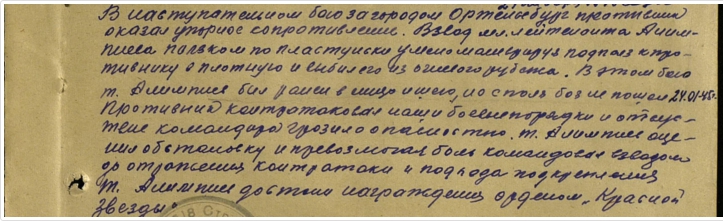 В наступательном бою за городом Ортельсбург противник
оказал упорное сопротивление. Взвод мл. лейтенанта Алим-
пиева ползком по пластунски умело маневрируя подполз к про-
тивнику вплотную и выбил его из рубежа. В этом бою
т. Алимпиев был ранен в лицо и шею, но с поля боя не пошел 24.01.45г.
Противник контратаковал наши боевые порядки и отсут-
ствие командира грозило опасностью. т. Алимпиев оце-
нил обстановку и превозмогая боль командовал взводом
до отражения контратаки и подхода подкрепления
т. Алимпиев достоин награждения орденом „Красной
Звезды"